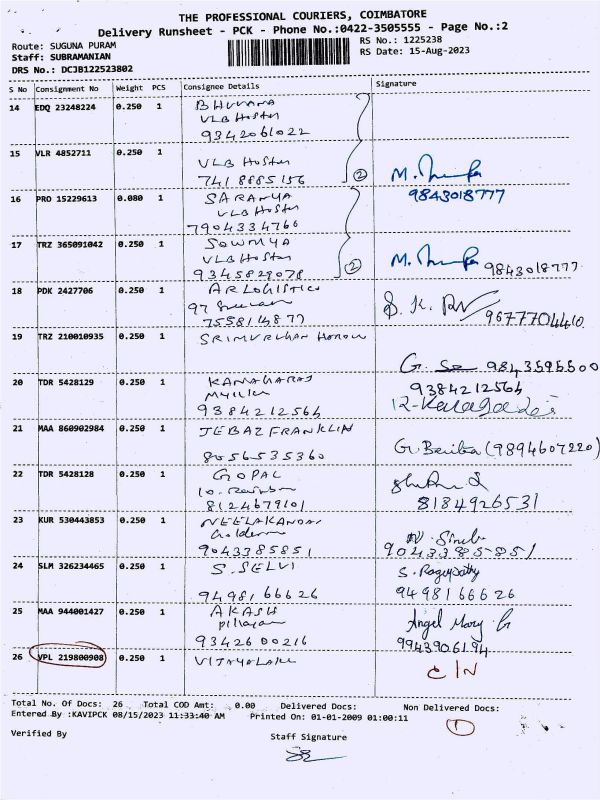 THE PROFESSIONAL COURIERS, COIMBATORE
Delivery Runsheet - PCK - Phone No.:0422-3505555 - Page No.:2
Route: SUGUNA PURAM
RS No.: 1225238
Staff: SUBRAMANIAN
RS Date: 15-Aug-2023
DRS No.: DCJB122523802
S No Consignment No Weight PCS Consignee Details Signature
14 EDQ 23248224 0.250 1 BHUVANA
VLB Hostes
9342061022
15 VLR 4852711 0.250 1
VLB Hostes
7418885156 2 M.
16 PRO 15229613 0.080 1 SARANYA 9843018777
VLB Hostes
7904334766
17 TRZ 365091042 0.250 1 SOWMYA
VLB Hostes M.
9345829078 2 9843018777
18 PDK 2427706 0.250 1 AR LOGISTICS
97 S.K.
7558143877 9677704410
19 TRZ 210010935 0.250 1 SRIMURUGAN
G. 9843595500
20 TDR 5428129 0.250 1 KANAGARAJ 9384212564
9384212564
21 MAA 860902984 0.250 1 JEBAZ FRANKLIN
8056535360 (9894607220)
22 TDR 5428128 0.250 1 GOPAL
10.
8124679101 8184926531
23 KUR 530443853 0.250 1 NEELAKANDAN
9043385851 9043385851
24 SLM 326234465 0.250 1 S. SELVI S.
9498166626 9498166626
25 MAA 944001427 0.250 1 AKASH Angel Mary G
9342600216 9943906194
26 VPL 219800908 0.250 1 C/N
Total No. Of Docs: 26 Total COD Amt: 0.00 Delivered Docs: Non Delivered Docs:
Entered By :KAVIPCK 08/15/2023 11:33:40 AM Printed On: 01-01-2009 01:00:11
1
Verified By
Staff Signature